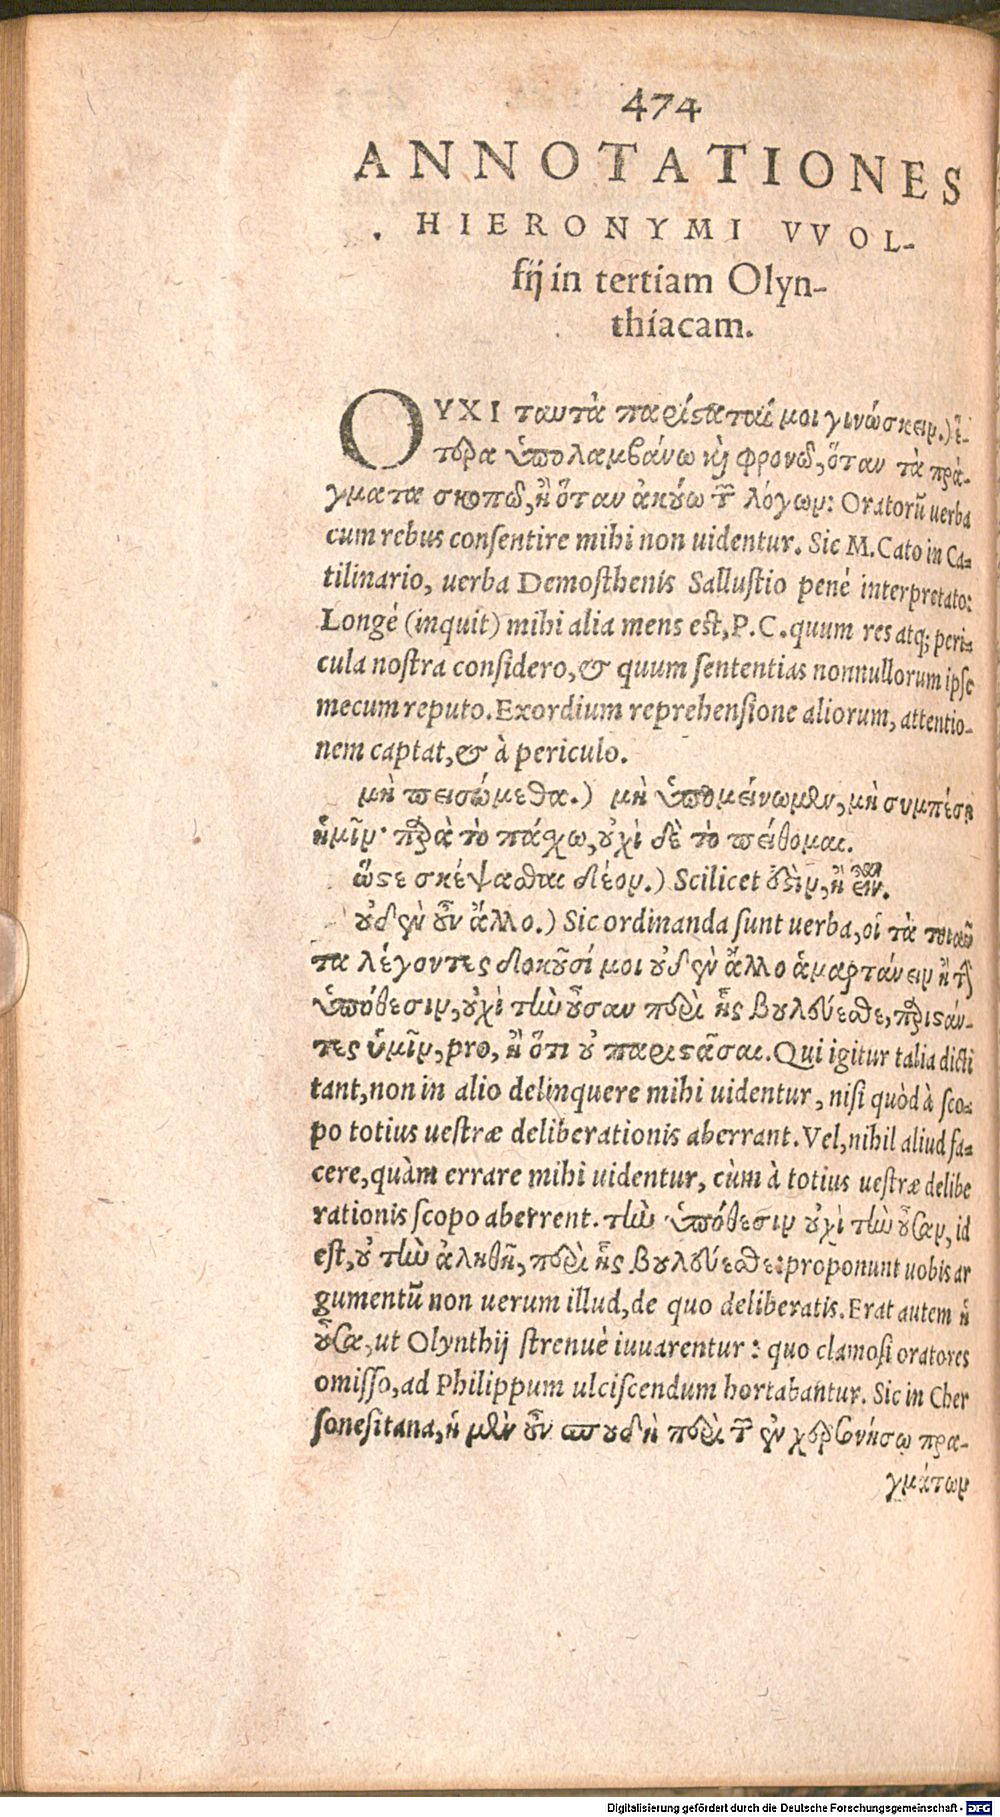 474
ANNOTATIONES
HIERONYMI VVOL-
fij in tertiam Olyn-
thíacam.
ΟΥΧΙ ταυτὰ παρίσταταί μοι γινώσκειν.) ἕ-
τερα ὑπολαμβάνω καὶ φρονῶ, ὅταν τὰ πρά-
γματα σκοπῶ, ἢ ὅταν ἀκούω τῶν λόγων: Oratorũ uerba
cum rebus conſentire mihi non uidentur. Sic M. Cato in Ca-
tilinario, uerba Demoſthenis Salluſtio penè interpretato:
Longè (inquit) mihi alia mens eſt, P. C. quum res atq; peri-
cula noſtra conſidero, & quum ſententias nonnullorum ipſe
mecum reputo. Exordium reprehenſione aliorum, attentio-
nem captat, & à periculo.
μὴ πεισώμεθα.) μὴ ὑπομείνωμεν, μὴ συμπέσῃ
ἡμῖν· παρὰ τὸ πάσχω, οὐχὶ δὲ τὸ πείθομαι.
ὥστε σκέψασθαι δέον.) Scilicet δεῖν, ἢ
οὐδὲν οὖν ἄλλο.) Sic ordinanda ſunt uerba, οἱ τὰ τοιαῦ
τα λέγοντες δοκοῦσί μοι οὐδὲν ἄλλο ἁμαρτάνειν ἢ τὴν
ὑπόθεσιν, οὐχὶ τὴν οὖσαν περὶ ἧς βουλεύεσθε, παριστάν-
τες ὑμῖν, pro, ἢ ὅτι οὐ παριστᾶσαι. Qui igitur talia dicti
tant, non in alio delinquere mihi uidentur, niſi quòd à ſco-
po totius ueſtræ deliberationis aberrant. Vel, nihil aliud fa-
cere, quàm errare mihi uidentur, cùm à totius ueſtræ delibe
rationis ſcopo aberrent. τὴν ὑπόθεσιν οὐχὶ τὴν οὖσαν, id
eſt, οὐ τὴν ἀληθῆ, περὶ ἧς βουλεύεσθε: proponunt uobis ar
gumentũ non uerum illud, de quo deliberatis. Erat autem ἡ
οὖσα, ut Olynthij ſtrenuè iuuarentur: quo clamoſi oratores
omiſſo, ad Philippum ulciſcendum hortabantur. Sic in Cher
ſoneſitana, ἡ μὲν οὖν σπουδὴ περὶ τῶν ἐν χερσονήσῳ πρα-
γμάτων
Digitalisierung gefördert durch die Deutsche Forschungsgemeinschaft - DFG